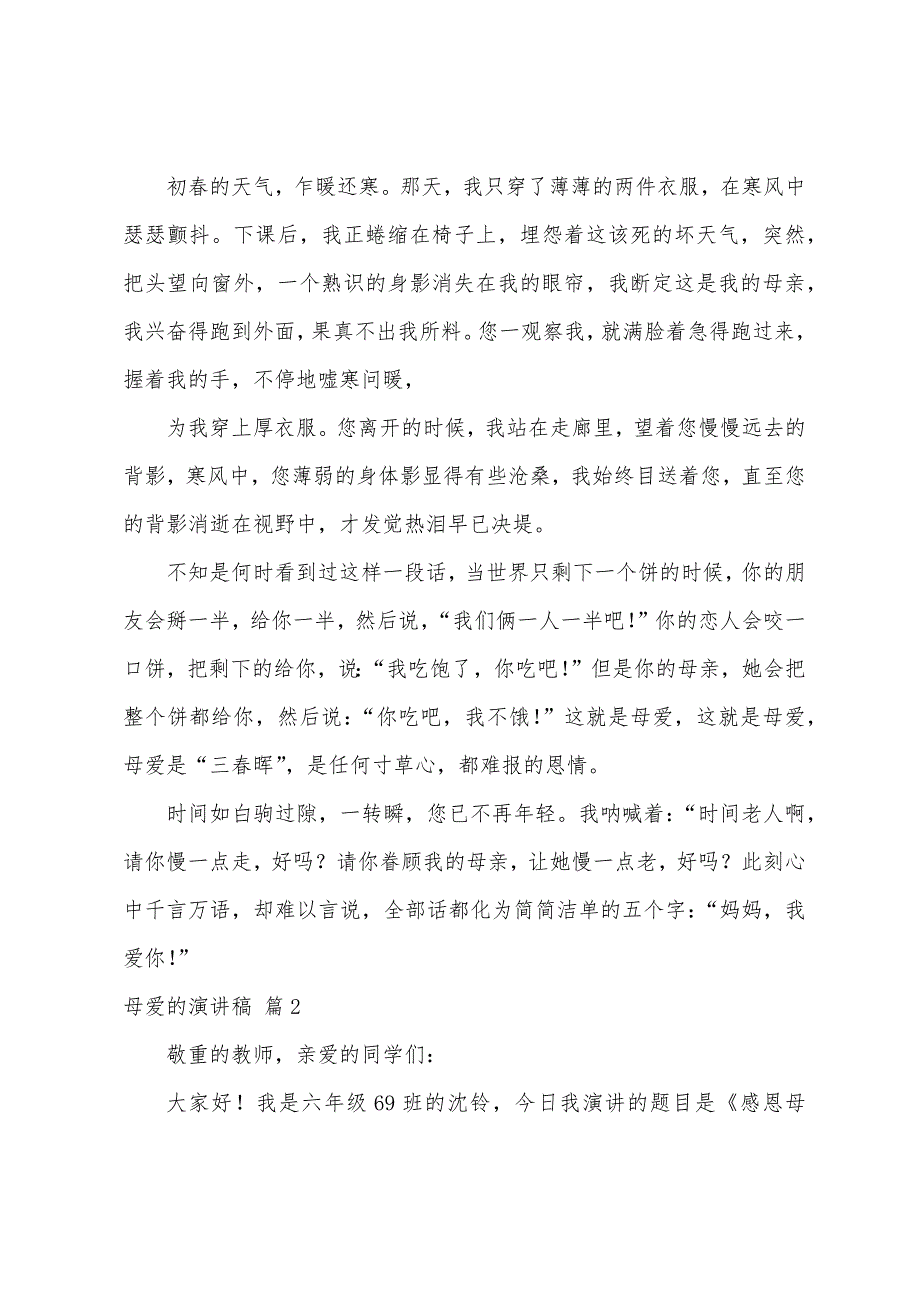 初春的天气，乍暖还寒。那天，我只穿了薄薄的两件衣服，在寒风中
瑟瑟颤抖。下课后，我正蜷缩在椅子上，埋怨着这该死的坏天气，突然，
把头望向窗外，一个熟识的身影消失在我的眼帘，我断定这是我的母亲，
我兴奋得跑到外面，果真不出我所料。您一观察我，就满脸着急得跑过来，
握着我的手，不停地嘘寒问暖，
为我穿上厚衣服。您离开的时候，我站在走廊里，望着您慢慢远去的
背影，寒风中，您薄弱的身体影显得有些沧桑，我始终目送着您，直至您
的背影消逝在视野中，才发觉热泪早已决堤。
不知是何时看到过这样一段话，当世界只剩下一个饼的时候，你的朋
友会掰一半，给你一半，然后说，“我们俩一人一半吧！”你的恋人会咬一
口饼，把剩下的给你，说：“我吃饱了，你吃吧！”但是你的母亲，她会把
整个饼都给你，然后说：“你吃吧，我不饿！”这就是母爱，这就是母爱，
母爱是“三春晖”，是任何寸草心，都难报的恩情。
时间如白驹过隙，一转瞬，您已不再年轻。我呐喊着：“时间老人啊，
请你慢一点走，好吗？请你眷顾我的母亲，让她慢一点老，好吗？此刻心
中千言万语，却难以言说，全部话都化为简简洁单的五个字：“妈妈，我
爱你！”
母爱的演讲稿 篇2
敬重的教师，亲爱的同学们：
大家好！我是六年级69班的沈铃，今日我演讲的题目是《感恩母